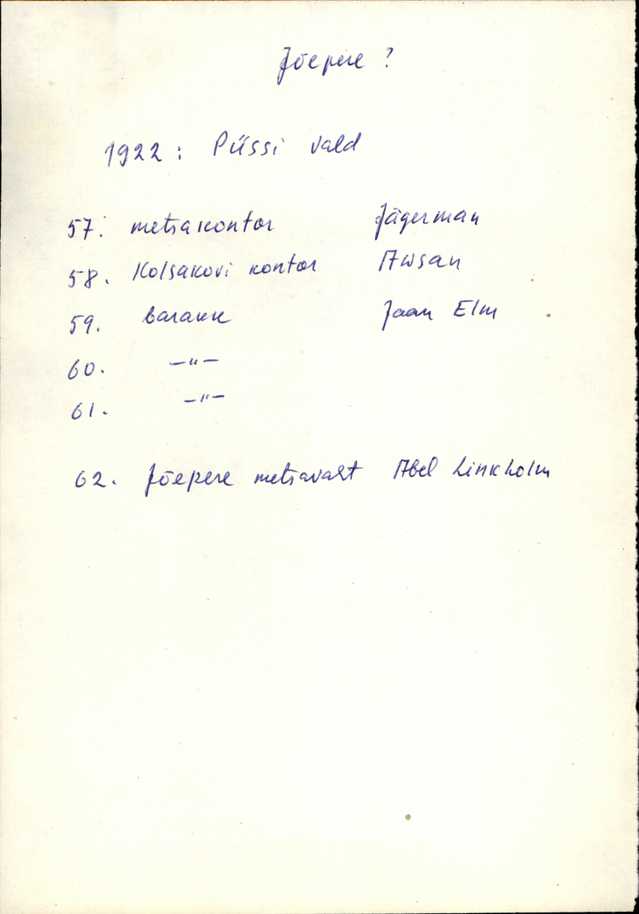 Jõepere ?
1922 : Püssi vald
57. metsakontor Jägerman
58. Kolsakovi kontor
59. barakk Jaan Elm
60. —"—
61. —"—
62. Jõepere metsavaht Abel Linkholm